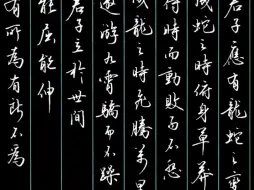 君子應有龍蛇之變
成蛇之時俯身草莽
成龍之時飛騰萬里
待時而動敗而不怒
遨游九霄驕而不躁
君子立於世间
能屈能伸
有所為有所不為